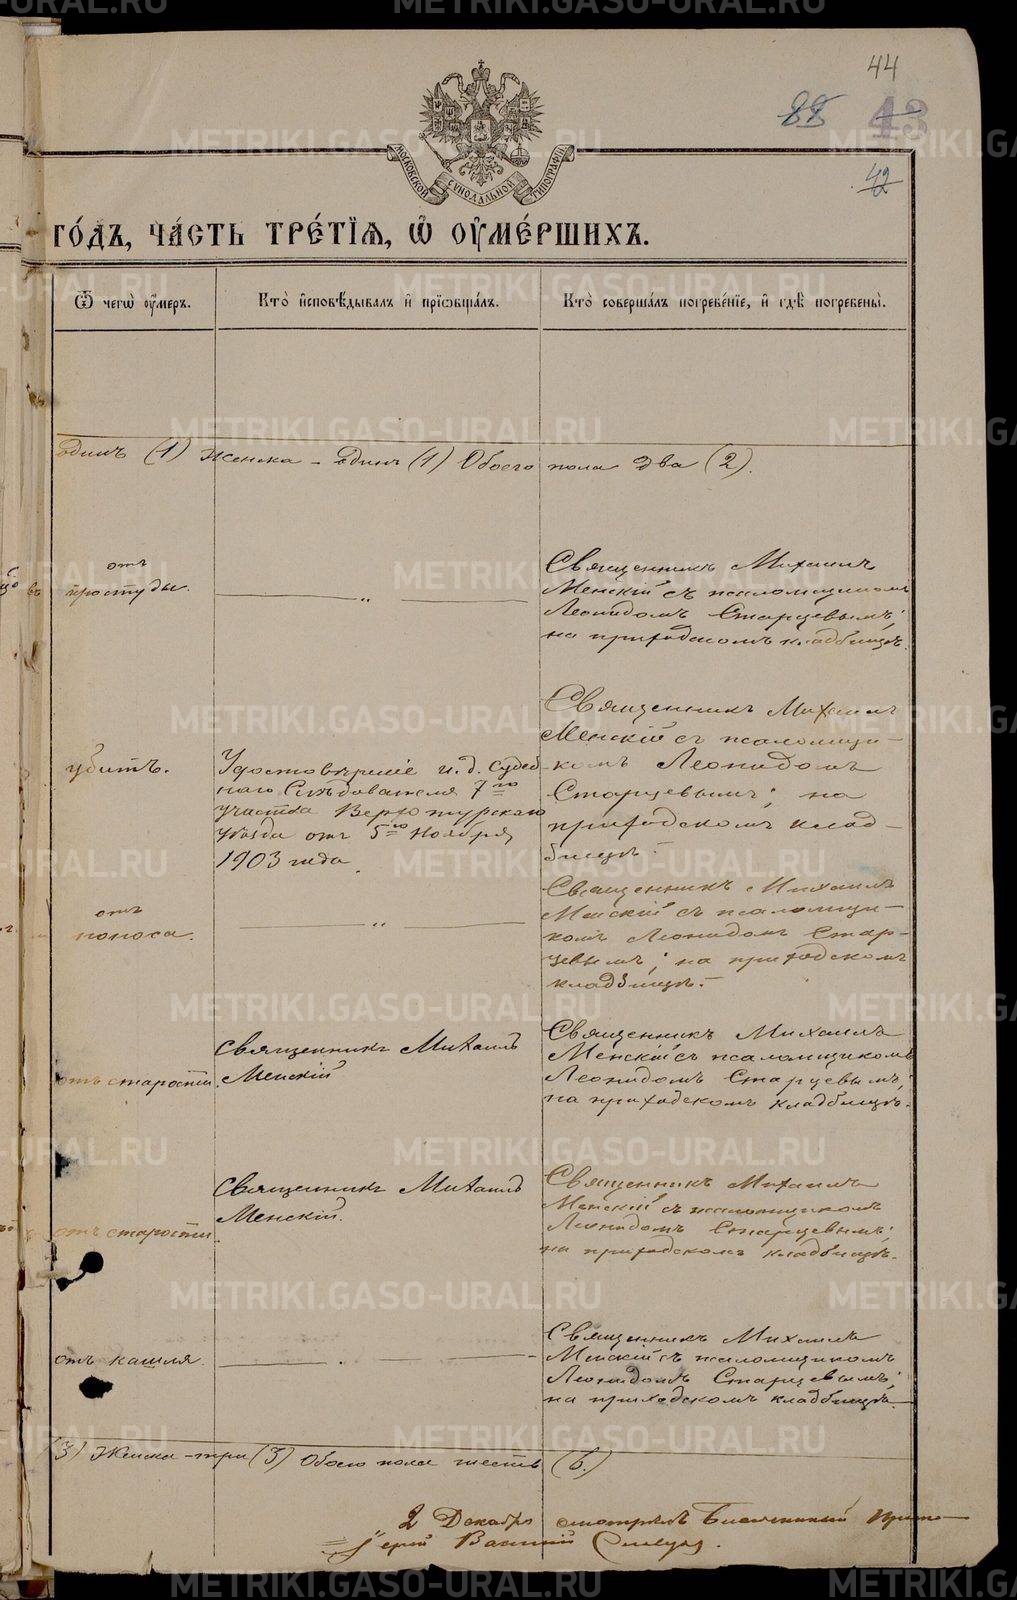 44
88 43
42
МОСКОВСКОЙ СУНОДАЛЬНОЙ ТИПОГРАФІИ
ГО́ДЪ, ЧА́СТЬ ТРЕ́ТІѦ, Ѡ҆ ОУ҆МЕ́РШИХЪ.
Ѿ чегѡ̀ оу҆́меръ.
Кто̀ и҆сповѣ́дывалъ и҆ прїѡбща́лъ.
Кто̀ соверша́лъ погребе́нїе, и҆ гдѣ̀ погребены̀.
одинъ (1) Женска – один (1) Обоего пола два (2).
отъ
простуды.
— „ —
Священникъ Михаилъ
Менскій съ псаломщикомъ
Леонидомъ Старцевымъ;
на приходскомъ кладбищѣ.
убитъ.
Удостовѣреніе и. д. Судеб
наго Слѣдователя 7го
участка Верхотурскаго
уѣзда отъ 5го Ноября
1903 года.
Священникъ Михаилъ
Менскій съ псаломщи-
комъ Леонидомъ
Старцевымъ; на
приходскомъ клад-
бищѣ.
отъ
поноса.
— „ —
Священникъ Михаилъ
Менскій съ псаломщи-
комъ Леонидомъ Стар-
цевымъ; на приходскомъ
кладбищѣ.
отъ старости.
Священникъ Михаилъ
Менскій
Священникъ Михаилъ
Менскій съ псаломщикомъ
Леонидомъ Старцевымъ;
на приходскомъ кладбищѣ.
отъ старости.
Священникъ Михаилъ
Менскій.
Священникъ Михаилъ
Менскій съ псаломщикомъ
Леонидомъ Старцевымъ;
на приходскомъ кладбищѣ.
отъ кашля.
— „ —
Священникъ Михаилъ
Менскій съ псаломщикомъ
Леонидомъ Старцевымъ;
на приходскомъ кладбищѣ.
(3) Женска – три (3) Обоего пола шесть (6.)
2 Декабря смотрѣлъ Благочинный Прото-
іерей Василій
METRIKI.GASO-URAL.RU